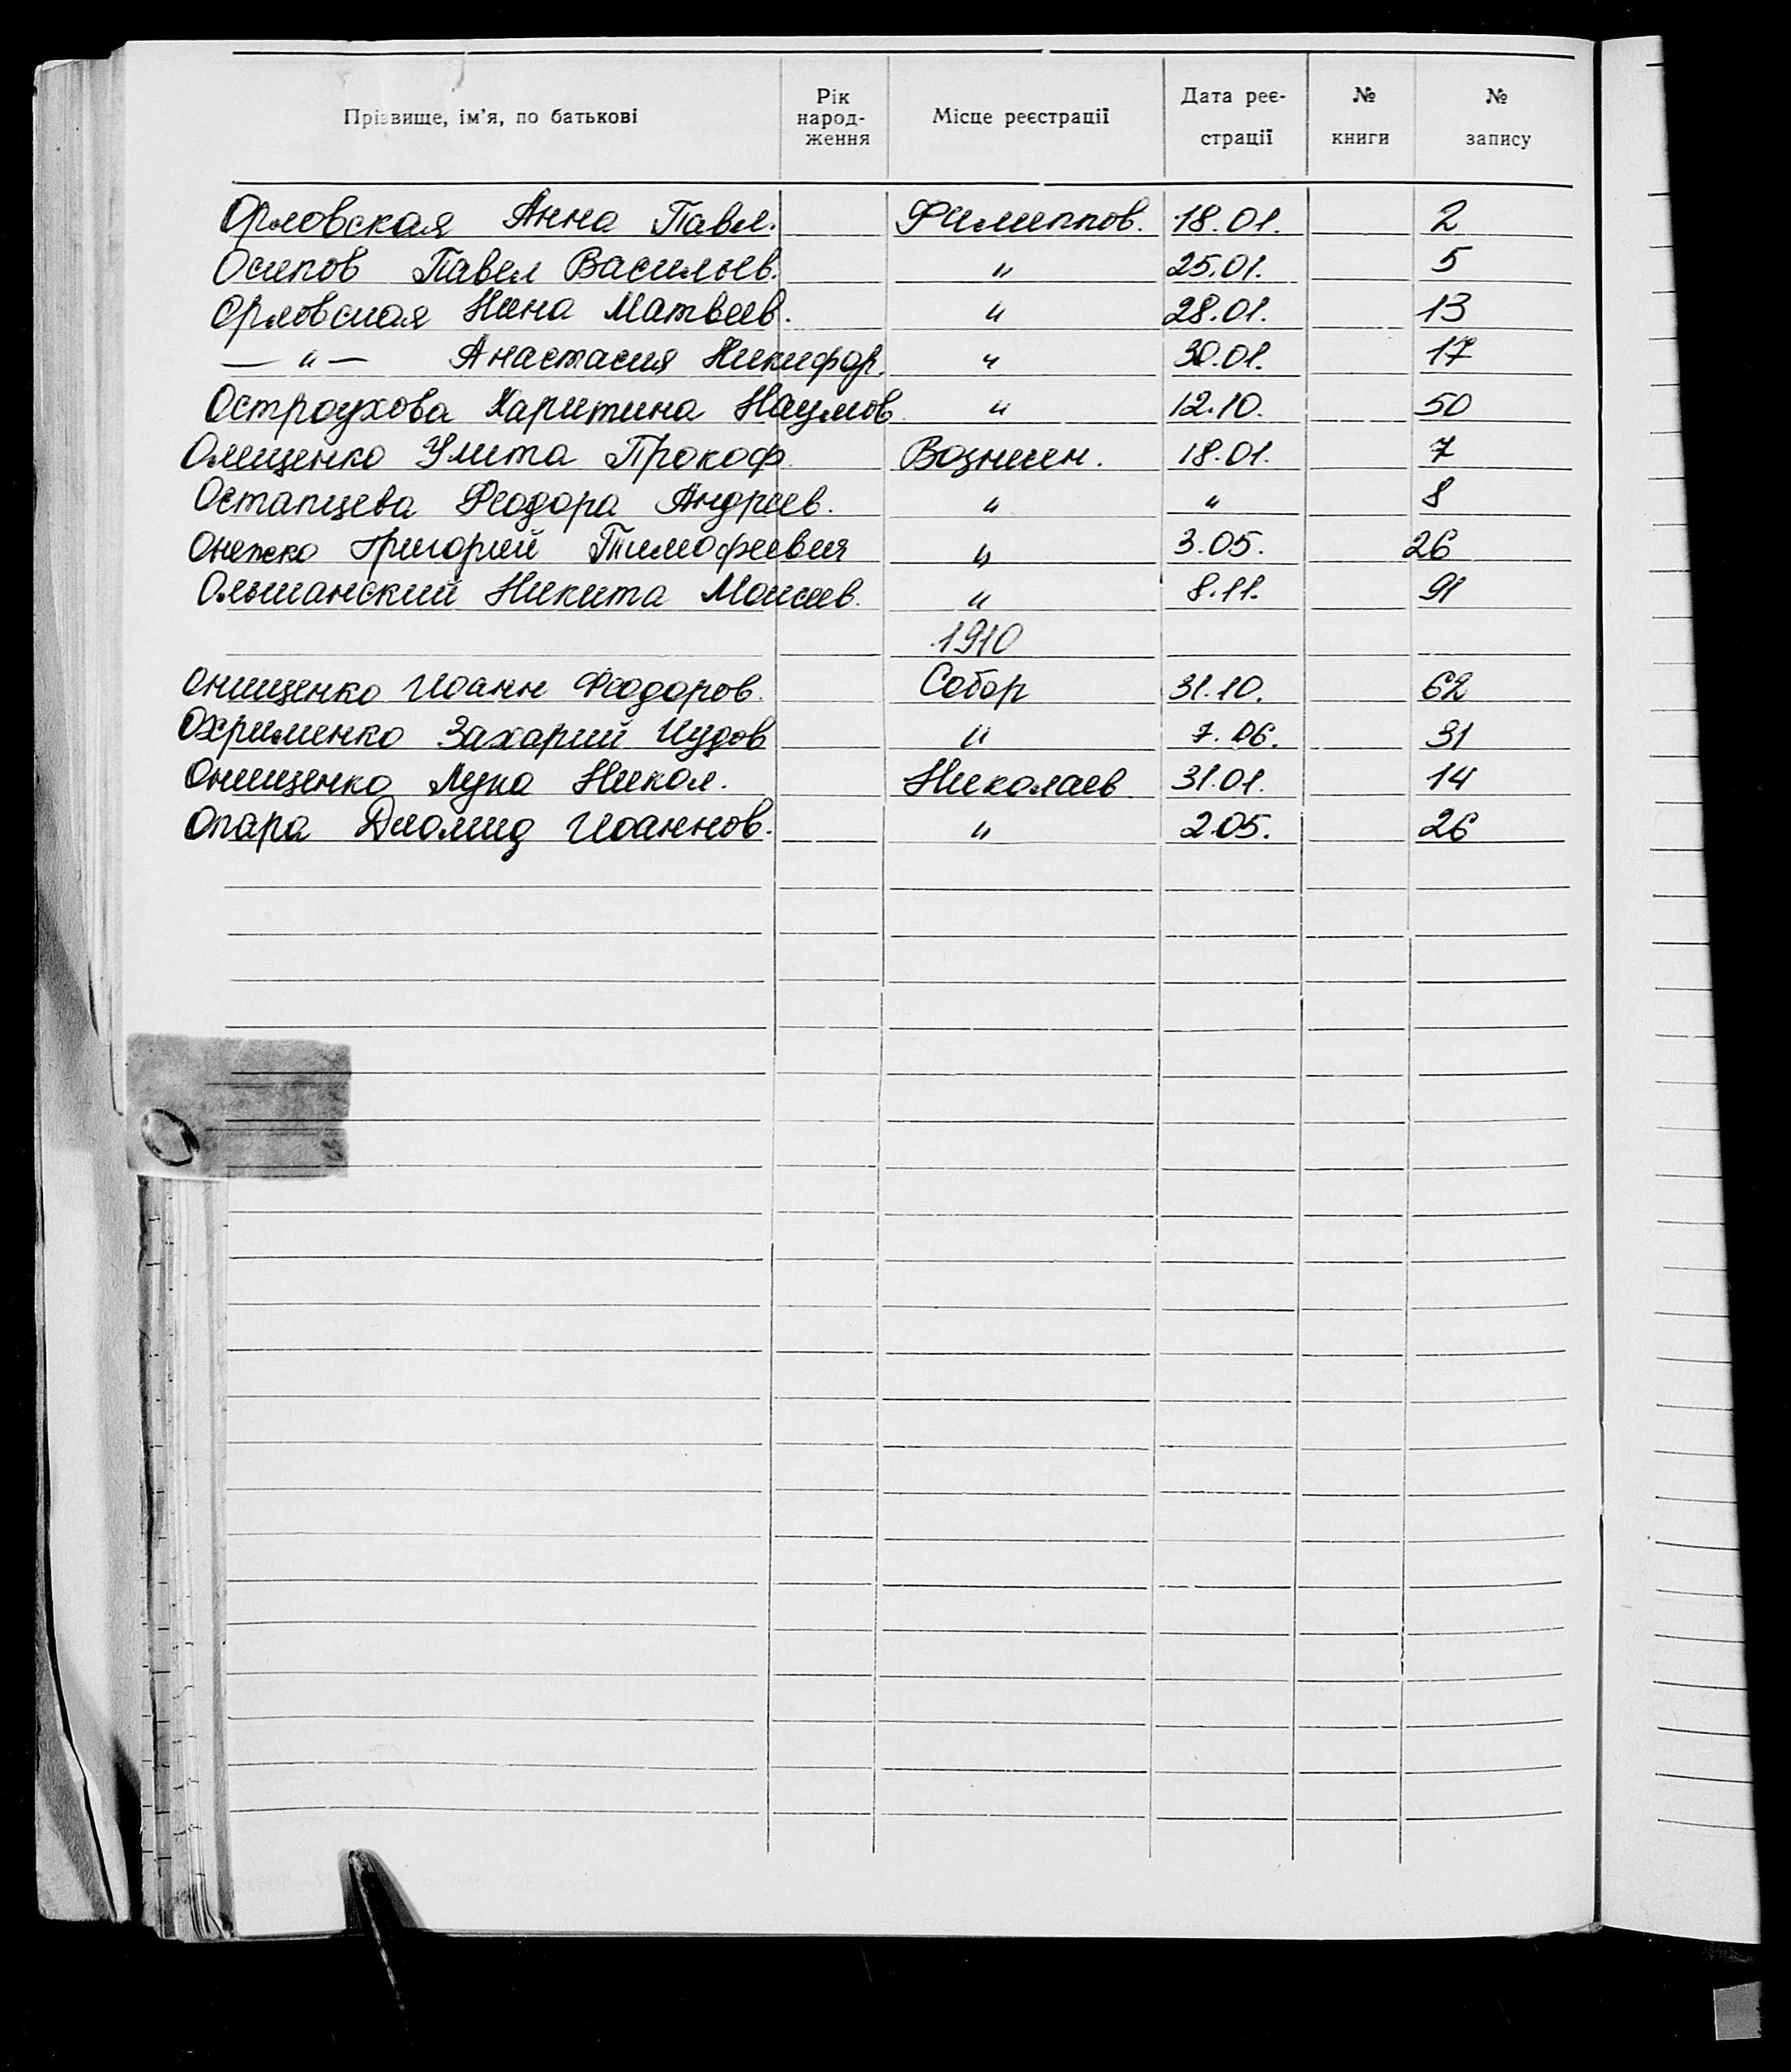 Прізвище, ім'я, по батькові Рік народ- ження Місце реєстрації Дата реє- страції № книги № запису
Орловская Анна Павл. Филиппов. 18.01. 2
Осипов Павел Васильев. " 25.01. 5
Орловская Нина Матвеев. " 28.01. 13
— " — Анастасия Никифор. " 30.01. 17
Остроухова Харитина Наумов. " 12.10. 50
Олещенко Улита Прокоф. Вознесен. 18.01. 7
Остапцева Феодора Андреев. " " 8
Онежко Григорий Тимофеевич " 3.05. 26
Ольшанский Никита Моисеев. " 8.11. 91
1910
Онищенко Иоанн Феодоров. Собор 31.10. 62
Охрименко Захарий Иудов " 7.06. 31
Онищенко Лука Никол. Николаев 31.01. 14
Опара Диомид Иоаннов. " 2.05. 26